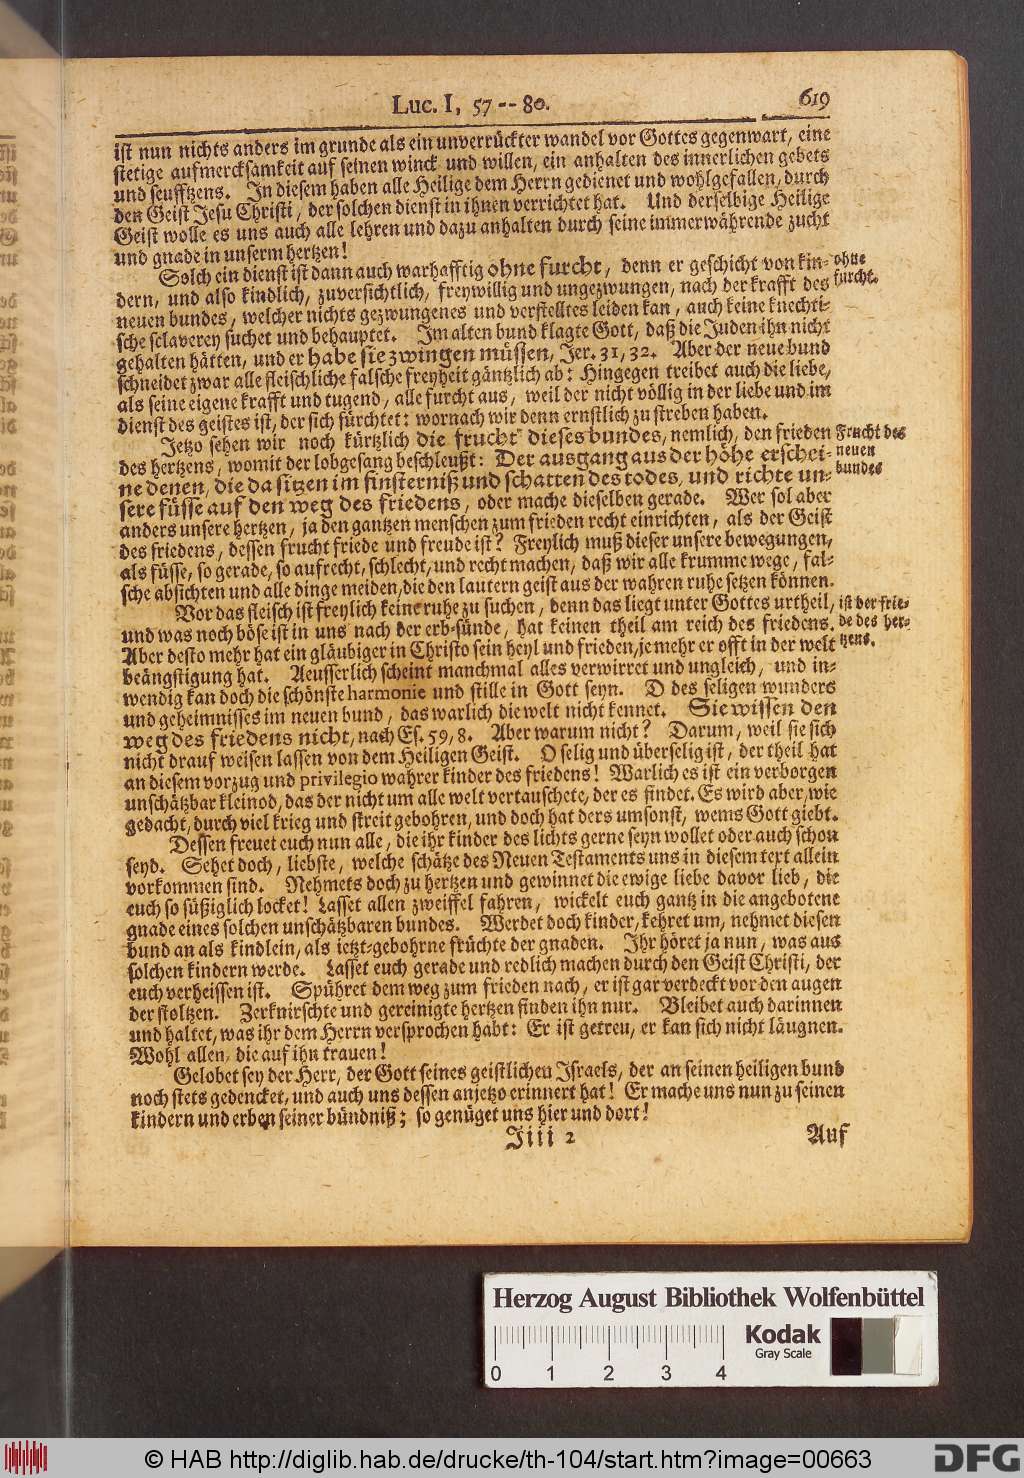 Luc. I, 57 -- 80. 619
ist nun nichts anders im grunde als ein unverrückter wandel vor Gottes gegenwart, eine
stetige aufmercksamkeit auf seinen winck und willen, ein anhalten des innerlichen gebets
und seufftzens. In diesem haben alle Heilige dem Herrn gedienet und wohlgefallen, durch
den Geist Jesu Christi, der solchen dienst in ihnen verrichtet hat. Und derselbige Heilige
Geist wolle es uns auch alle lehren und dazu anhalten durch seine immerwährende zucht
und gnade in unserm hertzen!
Solch ein dienst ist dann auch warhafftig ohne furcht, denn er geschicht von kin-
dern, und also kindlich, zuversichtlich, freywillig und ungezwungen, nach der krafft des
neuen bundes, welcher nichts gezwungenes und verstelltes leiden kan, auch keine knechti-
sche sclaverey suchet und behauptet. Im alten bund klagte Gott, daß die Juden ihn nicht
gehalten hätten, und er habe sie zwingen müssen, Jer. 31, 32. Aber der neue bund
schneidet zwar alle fleischliche falsche freyheit gäntzlich ab: Hingegen treibet auch die liebe,
als seine eigene krafft und tugend, alle furcht aus, weil der nicht völlig in der liebe und im
dienst des geistes ist, der sich fürchtet: wornach wir denn ernstlich zu streben haben.
ohne
furcht.
Jetzo sehen wir noch kürtzlich die frucht dieses bundes, nemlich, den frieden
des hertzens, womit der lobgesang beschleußt: Der ausgang aus der höhe erschei-
ne denen, die da sitzen im finsterniß und schatten des todes, und richte un-
sere füsse auf den weg des friedens, oder mache dieselben gerade. Wer sol aber
anders unsere hertzen, ja den gantzen menschen zum frieden recht einrichten, als der Geist
des friedens, dessen frucht friede und freude ist? Freylich muß dieser unsere bewegungen,
als füsse, so gerade, so aufrecht, schlecht, und recht machen, daß wir alle krumme wege, fal-
sche absichten und alle dinge meiden, die den lautern geist aus der wahren ruhe setzen können.
Frucht des
neuen
bundes
Vor das fleisch ist freylich keine ruhe zu suchen, denn das liegt unter Gottes urtheil,
und was noch böse ist in uns nach der erb-sünde, hat keinen theil am reich des friedens.
Aber desto mehr hat ein gläubiger in Christo sein heyl und frieden, je mehr er offt in der welt
beängstigung hat. Aeusserlich scheint manchmal alles verwirret und ungleich, und in-
wendig kan doch die schönste harmonie und stille in Gott seyn. O des seligen wunders
und geheimnisses im neuen bund, das warlich die welt nicht kennet. Sie wissen den
weg des friedens nicht, nach Es. 59, 8. Aber warum nicht? Darum, weil sie sich
nicht drauf weisen lassen von dem Heiligen Geist. O selig und überselig ist, der theil hat
an diesem vorzug und privilegio wahrer kinder des friedens! Warlich es ist ein verborgen
unschätzbar kleinod, das der nicht um alle welt vertauschete, der es findet. Es wird aber, wie
gedacht, durch viel krieg und streit gebohren, und doch hat ders umsonst, wems Gott giebt.
ist der frie-
de des her-
tzens.
Dessen freuet euch nun alle, die ihr kinder des lichts gerne seyn wollet oder auch schon
seyd. Sehet doch, liebste, welche schätze des Neuen Testaments uns in diesem text allein
vorkommen sind. Nehmets doch zu hertzen und gewinnet die ewige liebe davor lieb, die
euch so süßiglich locket! Lasset allen zweiffel fahren, wickelt euch gantz in die angebotene
gnade eines solchen unschätzbaren bundes. Werdet doch kinder, kehret um, nehmet diesen
bund an als kindlein, als ietzt-gebohrne früchte der gnaden. Ihr höret ja nun, was aus
solchen kindern werde. Lasset euch gerade und redlich machen durch den Geist Christi, der
euch verheissen ist. Spühret dem weg zum frieden nach, er ist gar verdeckt vor den augen
der stoltzen. Zerknirschte und gereinigte hertzen finden ihn nur. Bleibet auch darinnen
und haltet, was ihr dem Herrn versprochen habt: Er ist getreu, er kan sich nicht läugnen.
Wohl allen, die auf ihn trauen!
Gelobet sey der Herr, der Gott seines geistlichen Israels, der an seinen heiligen bund
noch stets gedencket, und auch uns dessen anjetzo erinnert hat! Er mache uns nun zu seinen
kindern und erben seiner bündniß; so genüget uns hier und dort!
Jiii 2 Auf
Herzog August Bibliothek Wolfenbüttel
Kodak
Gray Scale
0 1 2 3 4
© HAB http://diglib.hab.de/drucke/th-104/start.htm?image=00663
DFG